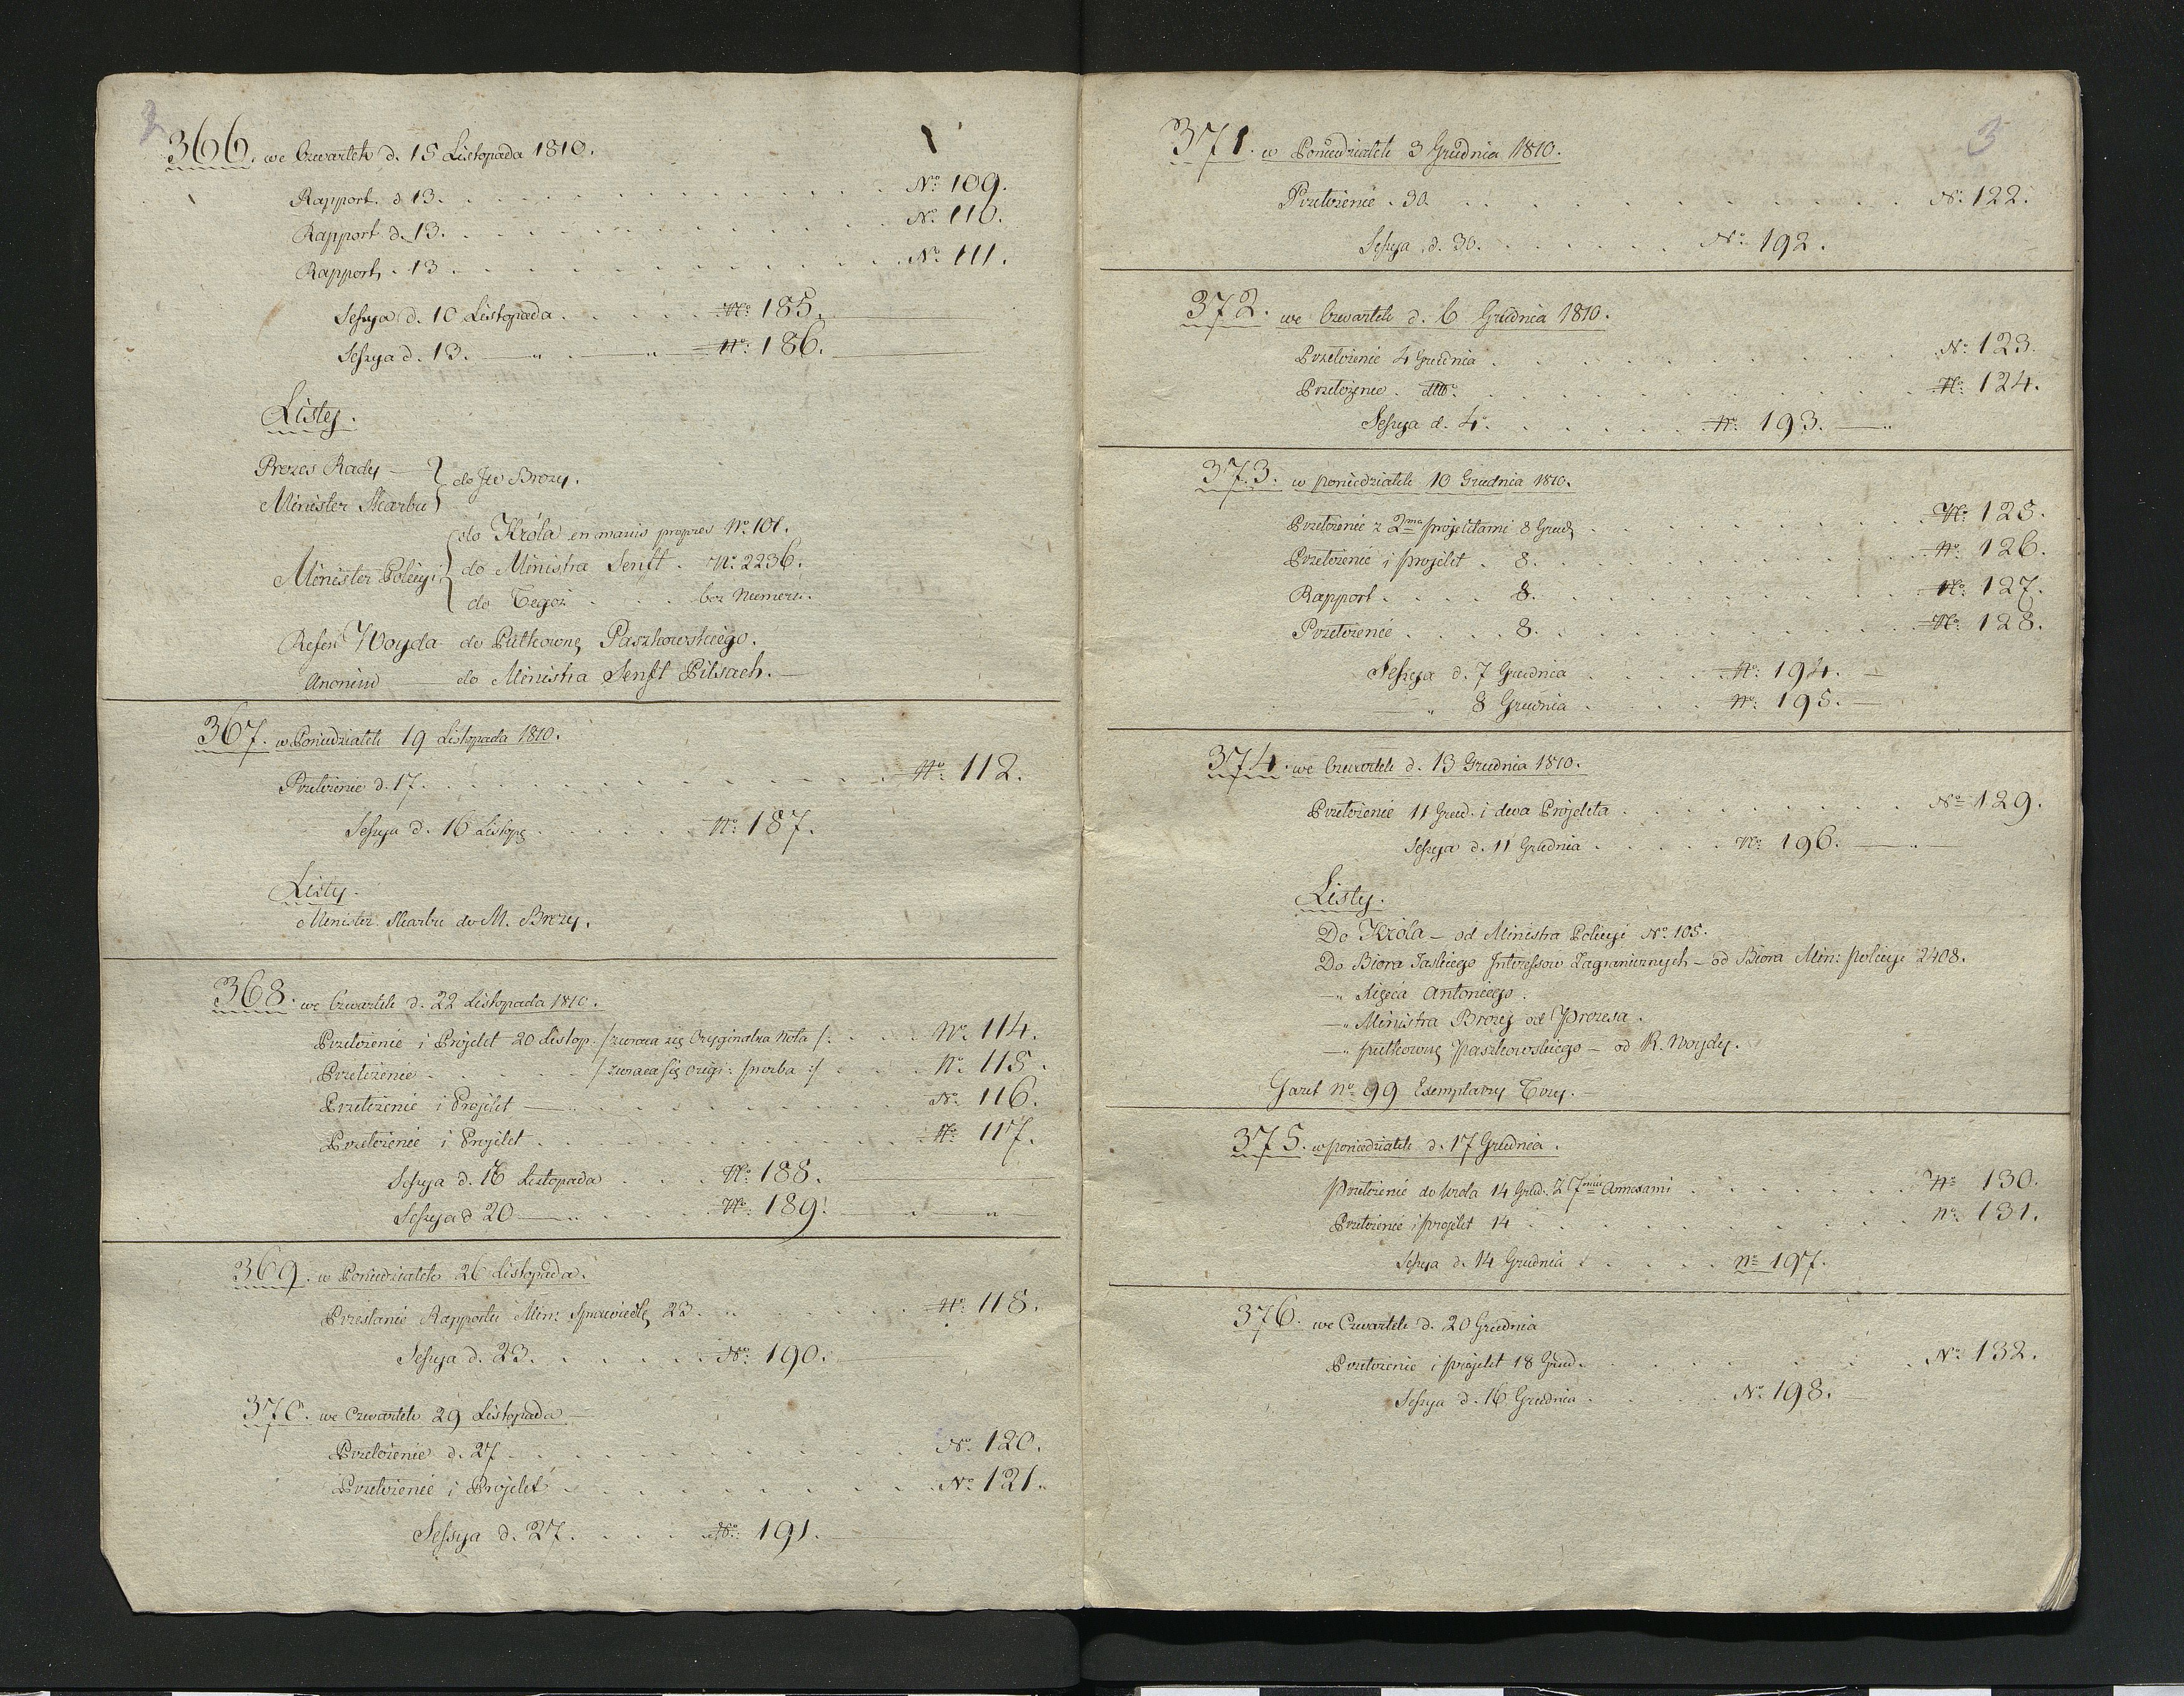 2
366. we Czwartek d. 15 Listopada 1810.
Rapport. d 13. N° 109.
Rapport d. 13. N° 110.
Rapport. 13. N° 111.
Sessya d. 10 Listopada. N° 185.
Sessya d. 13. — „ — „ — N° 186.
Listy.
Prezes Rady —
Minister Skarbu } do JW Brezy.
Minister Policyi { do Króla en mains propres N° 101.
do Ministra Senft. N° 2236.
do Tegoż bez Numeru.
Refer. Woyda do Pułkowne Paszkowskiego.
Anonim — do Ministra Senft Pilsach. —
367. w Poniedziałek 19 Listopada 1810.
Przełożenie d. 17. N° 112.
Sessya d. 16 Listop N° 187.
Listy.
Minister Skarbu do M. Brezy.
368. we Czwartek d. 22 Listopada 1810.
Przełożenie i Projekt 20 Listop. /: zwraca się Oryginalna Nota /: N° 114.
Przełożenie /: zwraca się origi: prozba :/ N° 115.
Przełożenie i Projekt — N° 116.
Przełożenie i Projekt N° 117.
Sessya d. 16 Listopada N° 188.
Sessya d 20 — „ N° 189.
369. w Poniedziałek 26 Listopada.
Przesłanie Rapportu Min: Sprawiedl 23. N° 118.
Sessya d. 23. N° 190.
370. we Czwartek 29 Listopada —
Przełożenie d. 27 N° 120.
Przełożenie i Projekt N° 121.
Sessya d. 27. N° 191.
3
371. w Poniedziałek 3 Grudnia 1810.
Przełożenie. 30. N° 122.
Sessya d. 30. N° 192.
372. we Czwartek d. 6 Grudnia 1810.
Przełożenie 4 Grudnia N° 123.
Przełożenie. dtto. N° 124.
Sessya d. 4. N° 193. — „
373. w poniedziałek 10 Grudnia 1810.
Przełożenie z 2ma projektami 8 Grud N° 125.
Przełożenie i projekt. 8. N° 126.
Rapport 8. N° 127.
Przełożenie 8. N° 128.
Sessya d. 7 Grudnia N° 194. —
— „ 8 Grudnia N° 195. —
374. we Czwartek d. 13 Grudnia 1810.
Przełożenie 11 Grud. i dwa Projekta N° 129.
Sessya d. 11 Grudnia N° 196. — „ —
Listy.
Do Króla — od Ministra Policyi N° 105.
Do Biora Saskiego Interessow Zagranicznych — od Biora Min: policyi 2408.
— „ Xięcia Antoniego.
— „ Ministra Brezy od Prezesa.
— „ pułkowne Paszkowskiego — od R. Woydy.
Gazet N° 99 Exemplarzy Trzy. —
375. w poniedziałek d. 17 Grudnia.
przełożenie do Króla 14 Grud. z 7miu Annexami N° 130.
Przełożenie i projekt 14 N° 131.
Sessya d. 14 Grudnia N° 197.
376. we Czwartek d. 20 Grudnia
Przełożenie i projekt 18 Grud. N° 132.
Sessya d. 16 Grudnia. N° 198. —